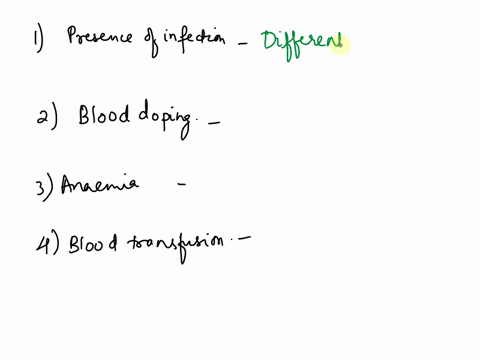 1) Presence of infection - Different
2) Blood doping. -
3) Anaemia -
4) Blood transfusion. -